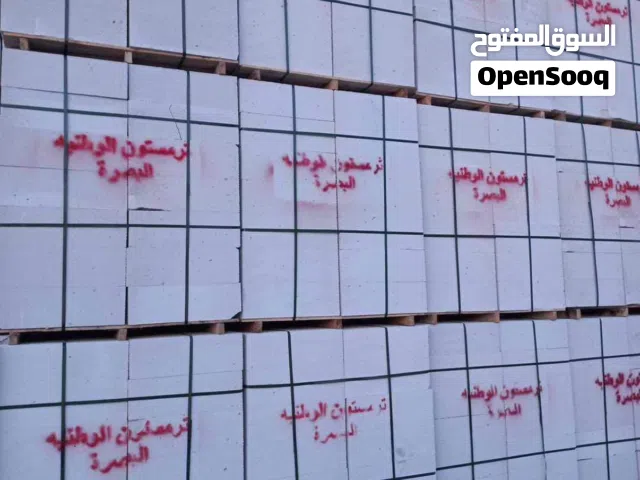 ترمستون الوطنيه
البصرة
السوق المفتوح
OpenSooq
ترمستون الوطنيه
البصرة
ترمستون الوطنيه
البصرة
ترمستون الوطنيه
البصرة
ترمستون الوطنيه
البصرة
ترمستون الوطنيه
البصرة
ترمستون الوطنيه
البصرة
ترمستون الوطنيه
البصرة
الوطنيه
البصرة